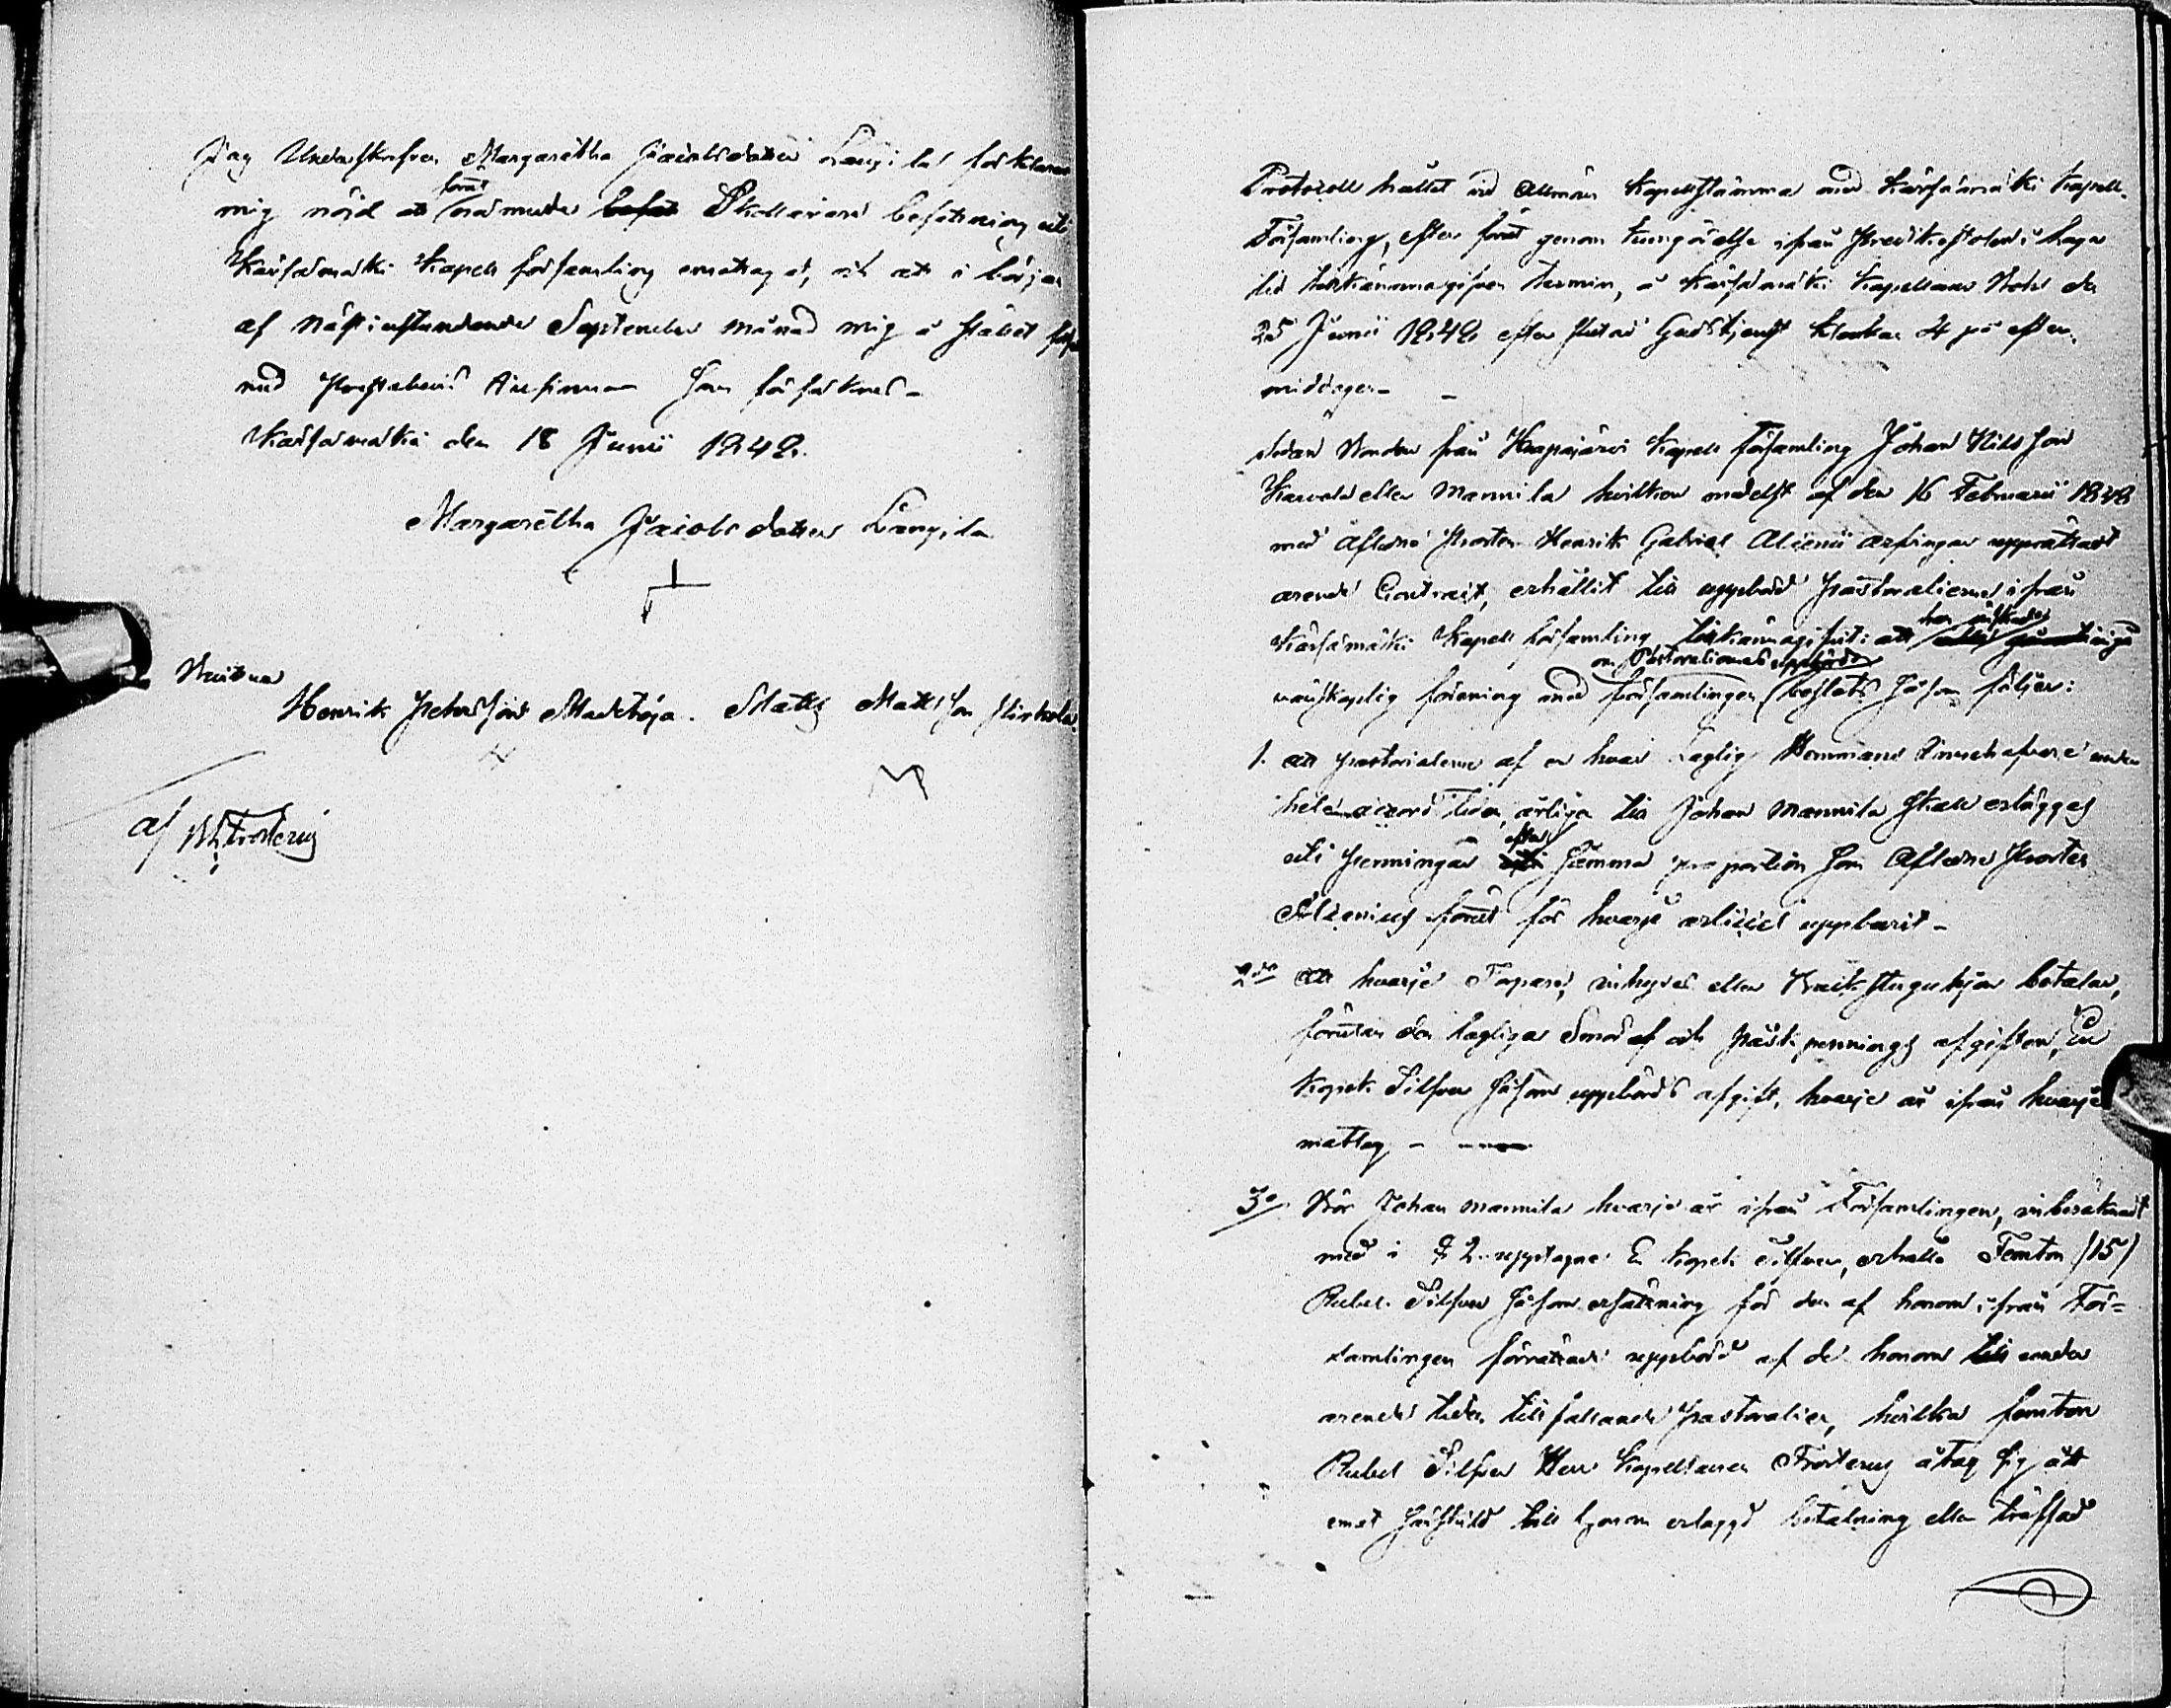 Jag Undertskrefven Margaretha Jacobsdotter Langila förklarar
mig nöjd att förut nämnde Skollärare befattning uti
Kärsämäki Kapell församling emottaga, och att i början
af nästinstundande September månad mig å stället
med Prestabevis som försäknas -
Kärsämäki den 18 Junii 1848.
Margaretha Jacobsdotter Langila
Wittna
Henrik Petersson Mattlöja. Matts Mattsson
af Frosterus
Protocoll hållet vid Allmän Kapellstämma med Kärsämäki Kapell-
Församling, efter förut genom kungörelse ifrån Predikostolen i laga
tid tillkännagifven termin, å Kärsämäki Kapellans Bohl den
25 Junii 1848 efter slutad Gudstjenst klockan 4 på efter-
middagen -
sedan Bonden från Haapajärvi Kapell församling Johan Nilsson
eller Mannila hvilken medelst af den 16 Februarii 1848
med Aflidne Prosten Henrik Gabriel Alcenii arfvingar upprättadt
arende Contract, erhållit till uppbörd pastoralierne ifrån
Kärsämäki Kapell församling tillkännagifvit: att han
förening med församlingen om Pastoraliernes uppbörd beslöts såsom följer:
1. att pastoralierne af en hvar Laglig Hemmans Innehafvare under
hela accord tiden, årliga till Johan Mannila skall erläggas
uti penningar efter samma proportion som Aflidne Prosten
Alcenius förut för hvarje articel uppburit -
2do att hvarje Torpare, inhyses eller Backstugu hjon betalar,
förutan den lagliga och påsk pennings afgiften, En
Kopek Silfver såsom uppbörds afgift, hvarje år ifrån hvarje
matlag -
3o Bör Johan Mannila hvarje år ifrån Församlingen, inberäknadt
med i § 2 upptagne En kopek Silfver, erhålla Femton /15/
Rubel Silfver såsom ersättning för den af honom ifrån För-
samlingen förrättade uppbörd af de honom under
arende tiden tillfallande pastoralier, hvilka femton
Rubel Silfver Herr Kapellanen Frosterus åtog sig att
emot till honom erlagd betalning eller träffad